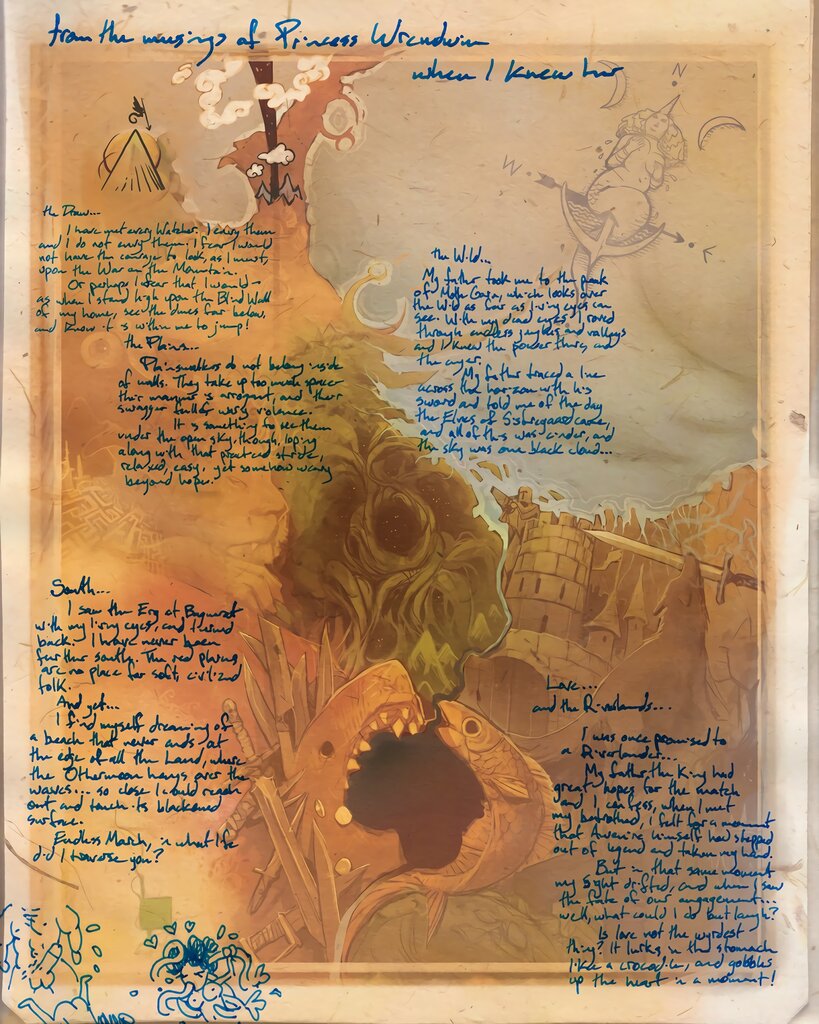 from the musings of Princess
when I knew her
N
W
E
the Draw...
I have met every Watcher. I envy them
and I do not envy them; I fear I would
not have the courage to look, as I must,
upon the War on the Mountain.
Or perhaps I fear that I would -
as when I stand high upon the Blind Wall
of my home, see the dunes far below,
and know it is within me to jump!
the Plains...
Plainswalkers do not belong inside
of walls. They take up too much space
their manner is arrogant, and their
swagger
It is something to see them
under the open sky, though, loping
along with that practiced stride,
relaxed, easy, yet somehow weary
beyond hope.
the Wild...
My father took me to the peak
of Moth Gate, which looks over
the Wild as far as living eyes can
see. With my dead eyes, I roved
through endless jungles and valleys
and I knew the power there, and
the anger.
My father traced a line
across the horizon with his
sword and told me of the day
the Elves of came,
and all of this was cinder, and
the sky was one black cloud...
South...
I saw the Erg at
with my living eyes, and turned
back. I have never been
further south. The red plains
are no place for soft, civilized
folk.
And yet...
I find myself dreaming of
a beach that never ends - at
the edge of all the Land, where
the Othermoon hangs over the
waves... so close I could reach
out and touch its blackened
surface.
Endless March, in what life
did I traverse you?
Love...
and the Riverlands...
I was once promised to
a Riverlander...
My father, the King had
great hopes for the match
and I confess, when I met
my betrothed, I felt for a moment
that himself had stepped
out of legend and taken my hand.
But in that same moment
my Sight drifted, and when I saw
the fate of our engagement...
well, what could I do but laugh?
Is love not the wyrdest
thing? It lurks in the stomach
like a crocodile, and gobbles
up the heart in a moment!